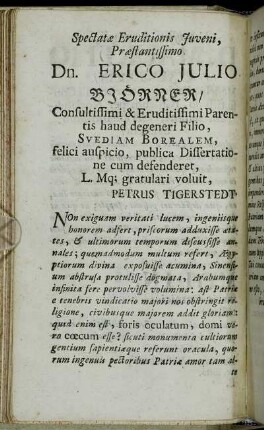 Spectatæ Eruditionis Juveni,
Præstantissimo
Dn. ERICO JULIO
BIÖRNER/
Consultissimi & Eruditissimi Paren-
tis haud degeneri Filio,
SVEDIAM BOREALEM,
felici auspicio, publica Dissertatio-
ne cum defenderet,
L. Mq; gratulari voluit,
PETRUS TIGERSTEDT.
NOn exiguam veritati lucem, ingeniisque
honorem adfert, priscorum adduxisse æta-
tes, & ultimorum temporum discussisse an-
nales; quemadmodum multum refert, Ægy-
ptiorum divina exposuisse acumina, Sinensi-
um abstrusa protulisse dogmata, Arabumque
infinita fere pervolvisse volumina: ast Patriæ
e tenebris vindicatio majori nos obstringit re-
ligione, civibusque majorem addit gloriam:
quid enim est, foris oculatum, domi ve-
ro cœcum esse? sicuti monumenta cultiorum
gentium sapientiæque referunt oracula, quo-
rum ingenuis pectoribus Patriæ amor tam al-
te